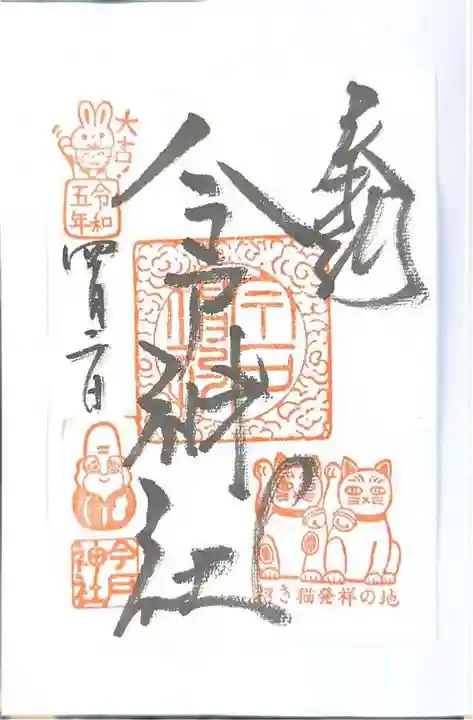 奉拝
今戸神社
大吉!
令和
五年
四月
今戸
神社
招き猫発祥の地